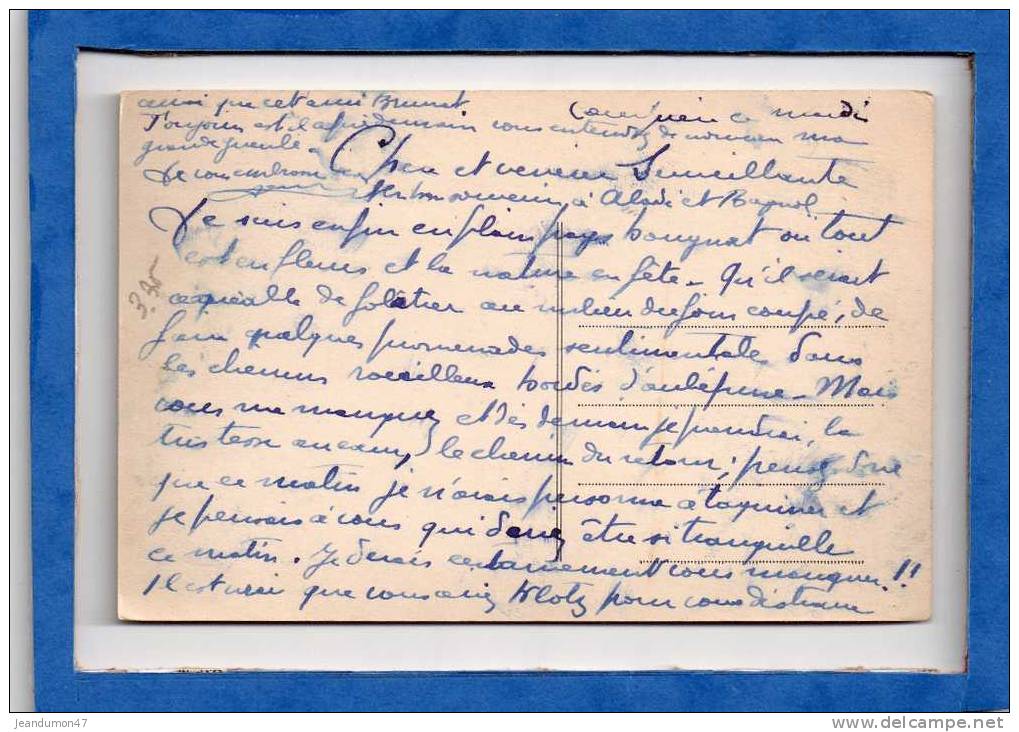 ce mardi
Chère et vénérée Surveillante
Je suis enfin en plein pays bougnat où tout
est en fleurs et la nature en fête - qu'il serait
agréable de folâtrer au milieu du foin coupé, de
faire quelques promenades sentimentales dans
les chemins rocailleux bordés d'aubépine - Mais
vous me manquez et dès demain je prendrai, la
tristesse au cœur, le chemin du retour ; pensez donc
que ce matin je n'avais personne à taquiner et
je pensais à vous qui deviez être si tranquille
ce matin. Je devais certainement vous manquer !!
Il est vrai que vous aviez Klotz pour vous distraire
ainsi que cet ami Brunat.
Toujours est-il après demain vous entendrez de nouveau ma
grande gueule -
Je vous embrasse
bon souvenir à et Bagnol
3.30
jeandumon47
http://www.delcampe.net